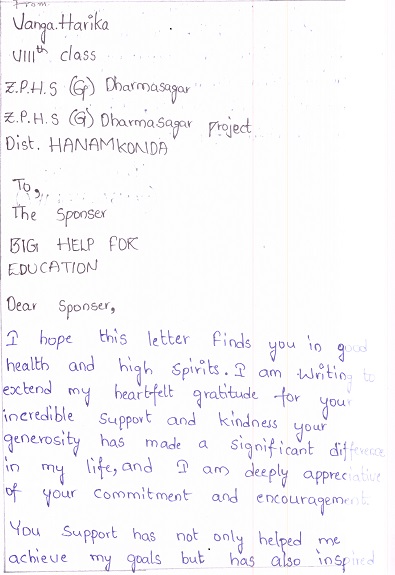 From
Vanga.Harika
VIIIth class
Z.P.H.S (G) Dharmasagar
Z.P.H.S (G) Dharmasagar project
Dist. HANAMKONDA
To,
The Sponser
BIG HELP FOR
EDUCATION
Dear Sponser,
I hope this letter finds you in good
health and high spirits. I am writing to
extend my heartfelt gratitude for your
incredible support and kindness your
generosity has made a significant difference
in my life, and I am deeply appreciative
of your commitment and encouragement.
You support has not only helped me
achieve my goals but has also inspired